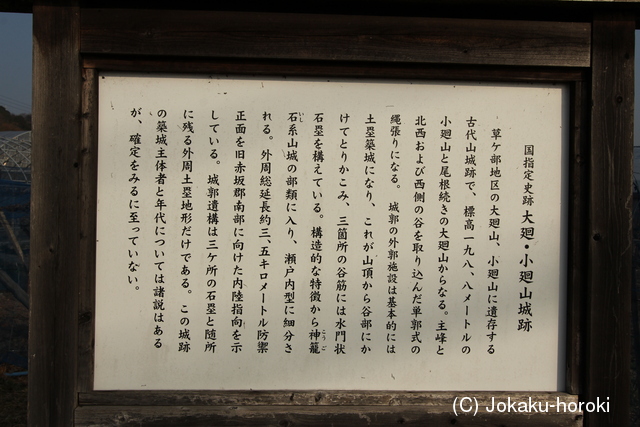 国指定史跡 大廻・小廻山城跡
草ケ部地区の大廻山、小廻山に遺存する
古代山城跡で、標高一九八、八メートルの
小廻山と尾根続きの大廻山からなる。主峰と
北西および西側の谷を取り込んだ単郭式の
縄張りになる。 城郭の外郭施設は基本的には
土塁築城になり、これが山頂から谷部にか
けてとりかこみ、三箇所の谷筋には水門状
石塁を構えている。構造的な特徴から神籠
こうご
石系山城の部類に入り、瀬戸内型に細分さ
いし
れる。外周総延長約三、五キロメートル防禦
正面を旧赤坂郡南部に向けた内陸指向を示
している。城郭遺構は三ケ所の石塁と随所
に残る外周土塁地形だけである。この城跡
の築城主体者と年代については諸説はある
が、確定をみるに至っていない。
(C) Jokaku-horoki